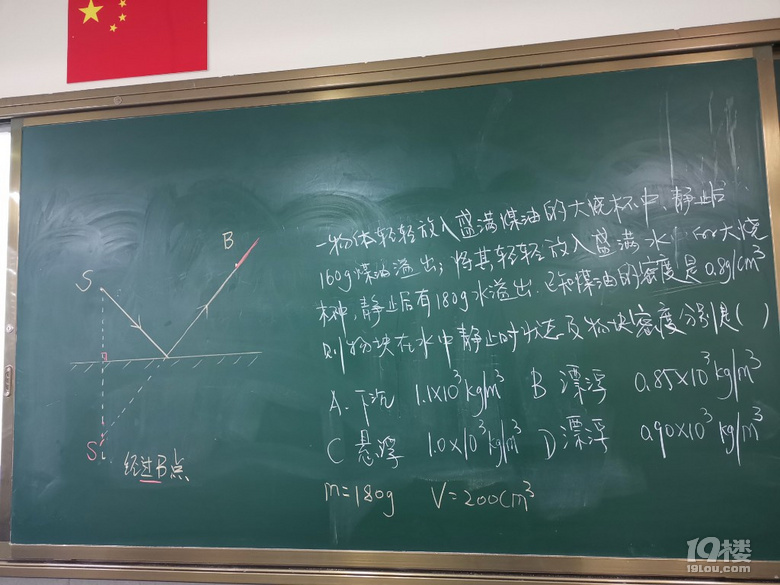 一物体轻轻放入盛满煤油的大烧杯中,静止后
160g煤油溢出;将其轻轻放入盛满水的大烧
杯中,静止后有180g水溢出.已知煤油的密度是0.8g/cm³
则物块在水中静止时状态及物块密度分别是( )
A.下沉 1.1×10³kg/m³ B 漂浮 0.85×10³kg/m³
C 悬浮 1.0×10³kg/m³ D 漂浮 0.90×10³kg/m³
m=180g V=200cm³
B
S
S'
经过B点
19楼
19lou.com